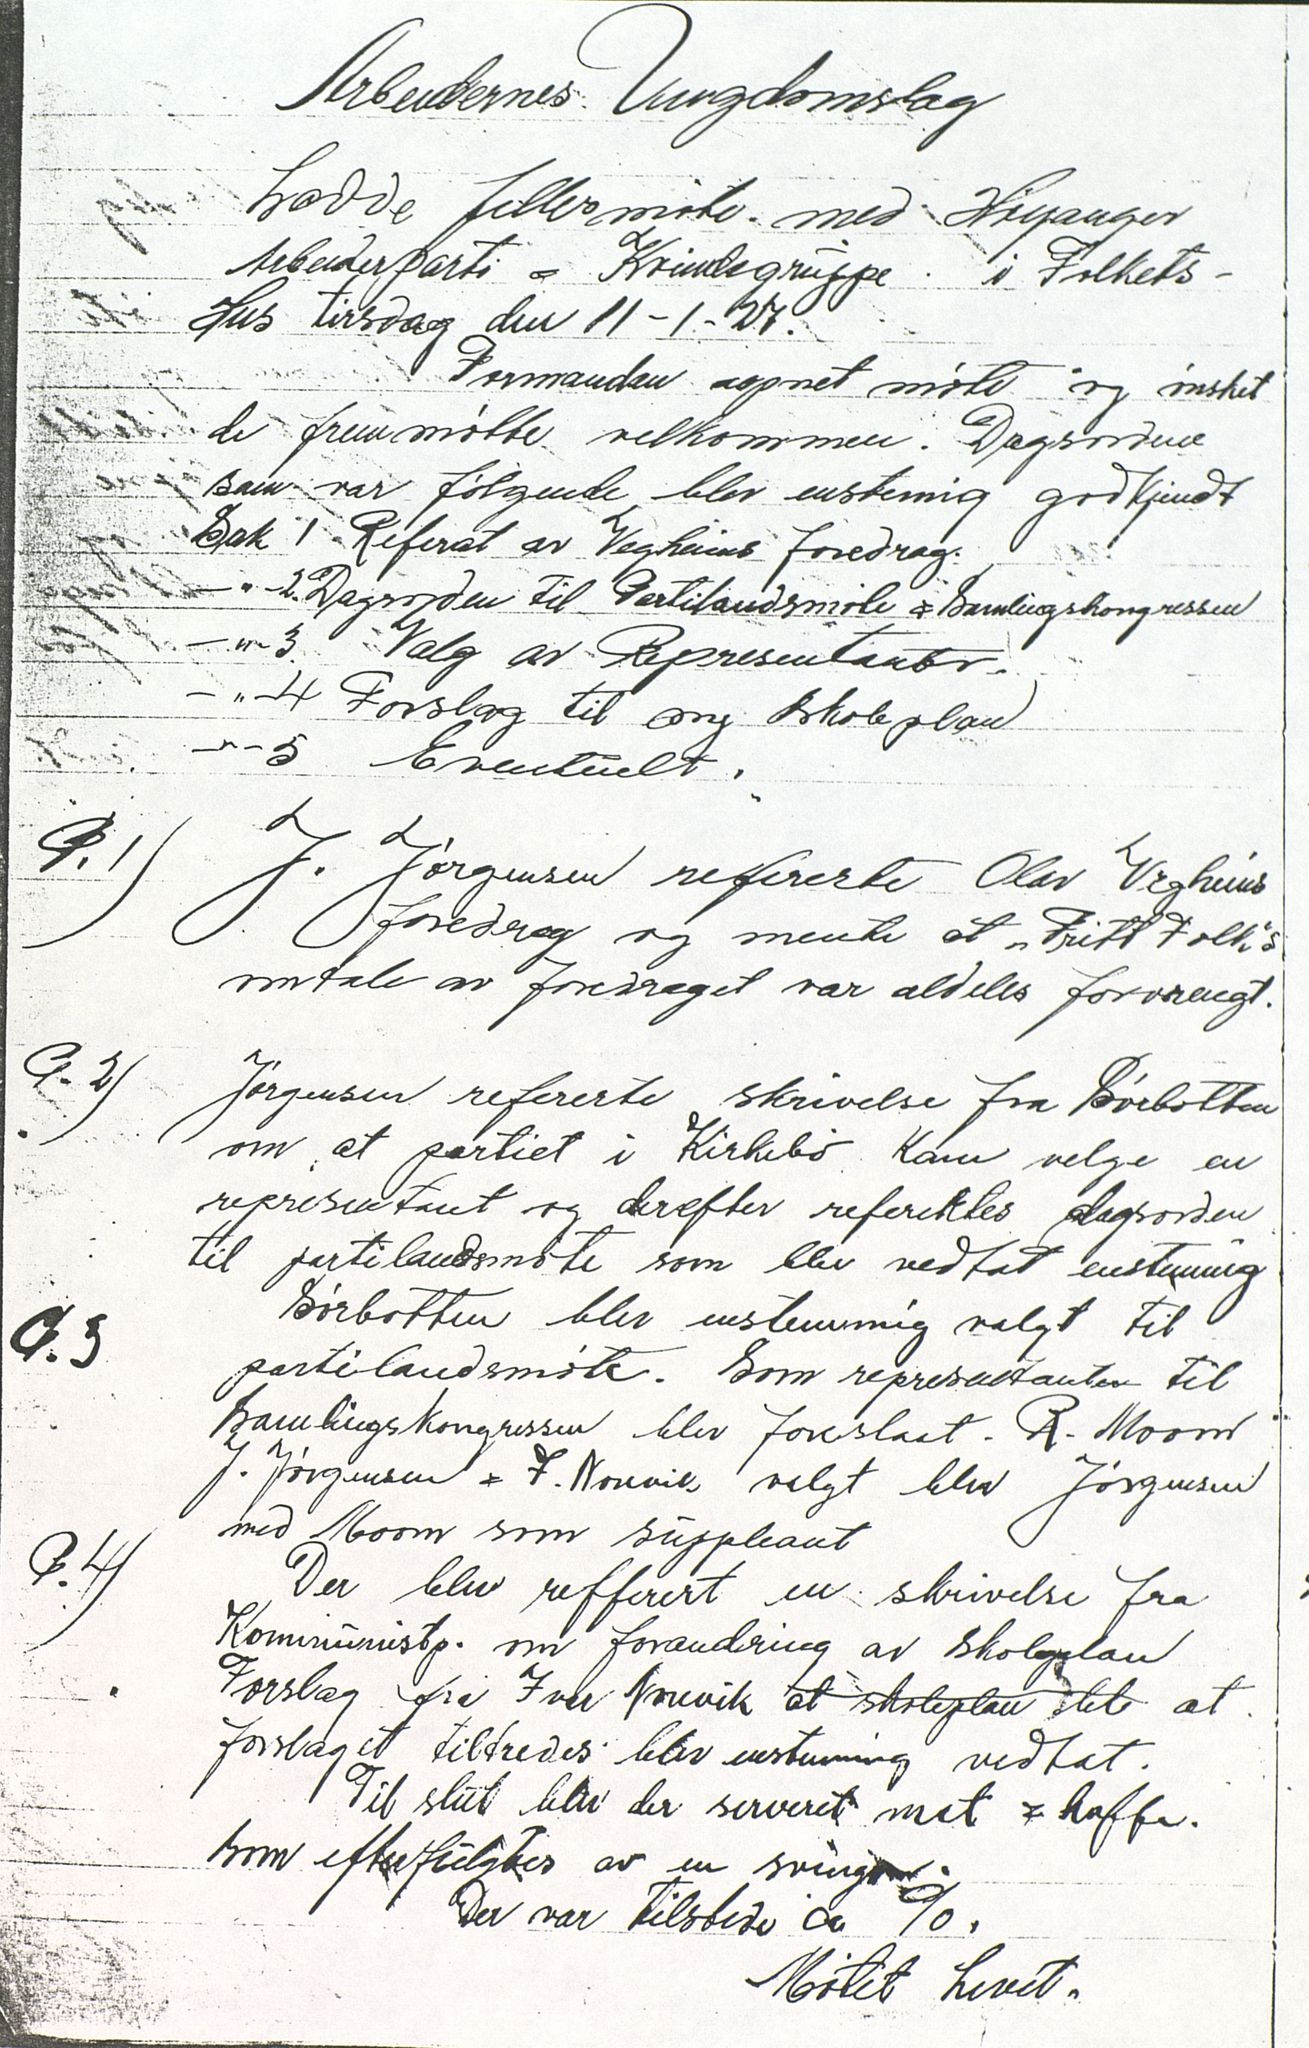 Arbeidernes Ungdomslag
hadde fellesmöte med Höyanger
Arbeiderparti & Kvindegruppe i Folkets-
Hus tirsdag den 11-1-27.
Formanden aapnet möte og önsket
de fremmötte velkommen. Dagsordene
som var fölgende blev enstemig godkjendt
Sak 1 Referat av Vegheims foredrag.
—"—2. Dagsorden til Partilandsmöte & Samlingskongressen
—"—3. Valg av Representanter.
—"—4 Forslag til ny skoleplan
—"—5 Eventuelt.
P. 1) J. Jörgensen refererte Olav Vegheims
foredrag og mente at "Fritt Folk"s
omtale av foredraget var aldeles forvrengt.
P. 2) Jörgensen refererte skrivelse fra Sörbotten
om at partiet i Kirkebö kan velge en
representant og derefter refertes dagsorden
til partilandsmöte som blev vedtat enstemmig
P. 3 Sörbotten blev enstemmig valgt til
partilandsmöte. Som representanter til
Samlingskongressen blev foreslaat. R. Moom
J. Jörgensen & I. Nouvik valgt blev Jörgensen
med Moom som suppleant
P. 4) Der blev refferert en skrivelse fra
Kommunistp. om forandring av skoleplan
Forslag fra Iver Nouvik at skoleplan at
forslaget tiltredes blev enstemmig vedtat.
Til slut blev der serveret mat & kaffe.
som efterfulgtes av en
Der var tilstede ca
Mötet hevet.